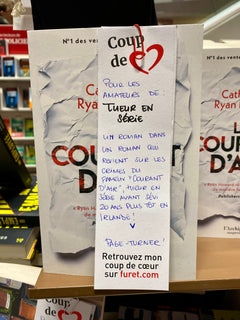 N°1 des
Coup
de
POUR LES
AMATEURS DE :
TUEUR EN
SÉRIE
UN ROMAN DANS
UN ROMAN QUI
REVIENT SUR LES
CRIMES DU
FAMEUX "COURANT
D'AIR", TUEUR EN
SÉRIE AYANT SÉVI
20 ANS PLUS TÔT EN
IRLANDE !
PAGE-TURNER !
Retrouvez mon
coup de cœur
sur furet.com
Cath
Ryan
D'A
Coup